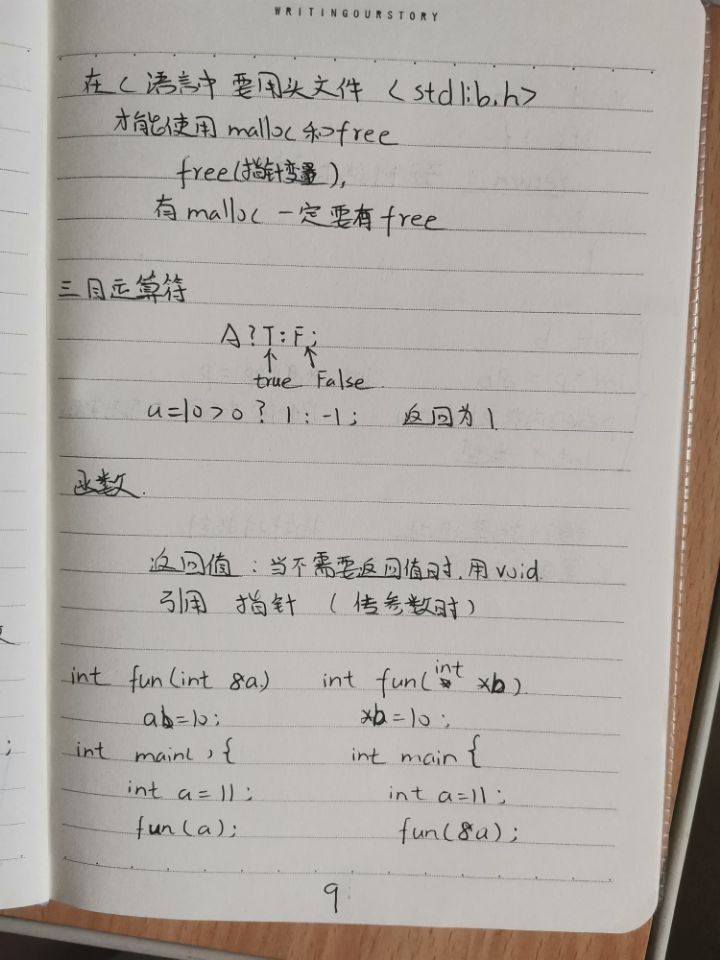 WRITINGOURSTORY
在C语言中 要用头文件 <stdlib.h>
才能使用malloc和free
free(指针变量),
有malloc 一定要有free
三目运算符
A?T:F;
↑ ↑
true False
a=10>0?1:-1; 返回为1
函数.
返回值:当不需要返回值时,用void.
引用 指针 (传参数时)
int fun(int &a) int fun(int *b)
a=10; *b=10;
int main(){ int main{
int a=11; int a=11;
fun(a); fun(&a);
9